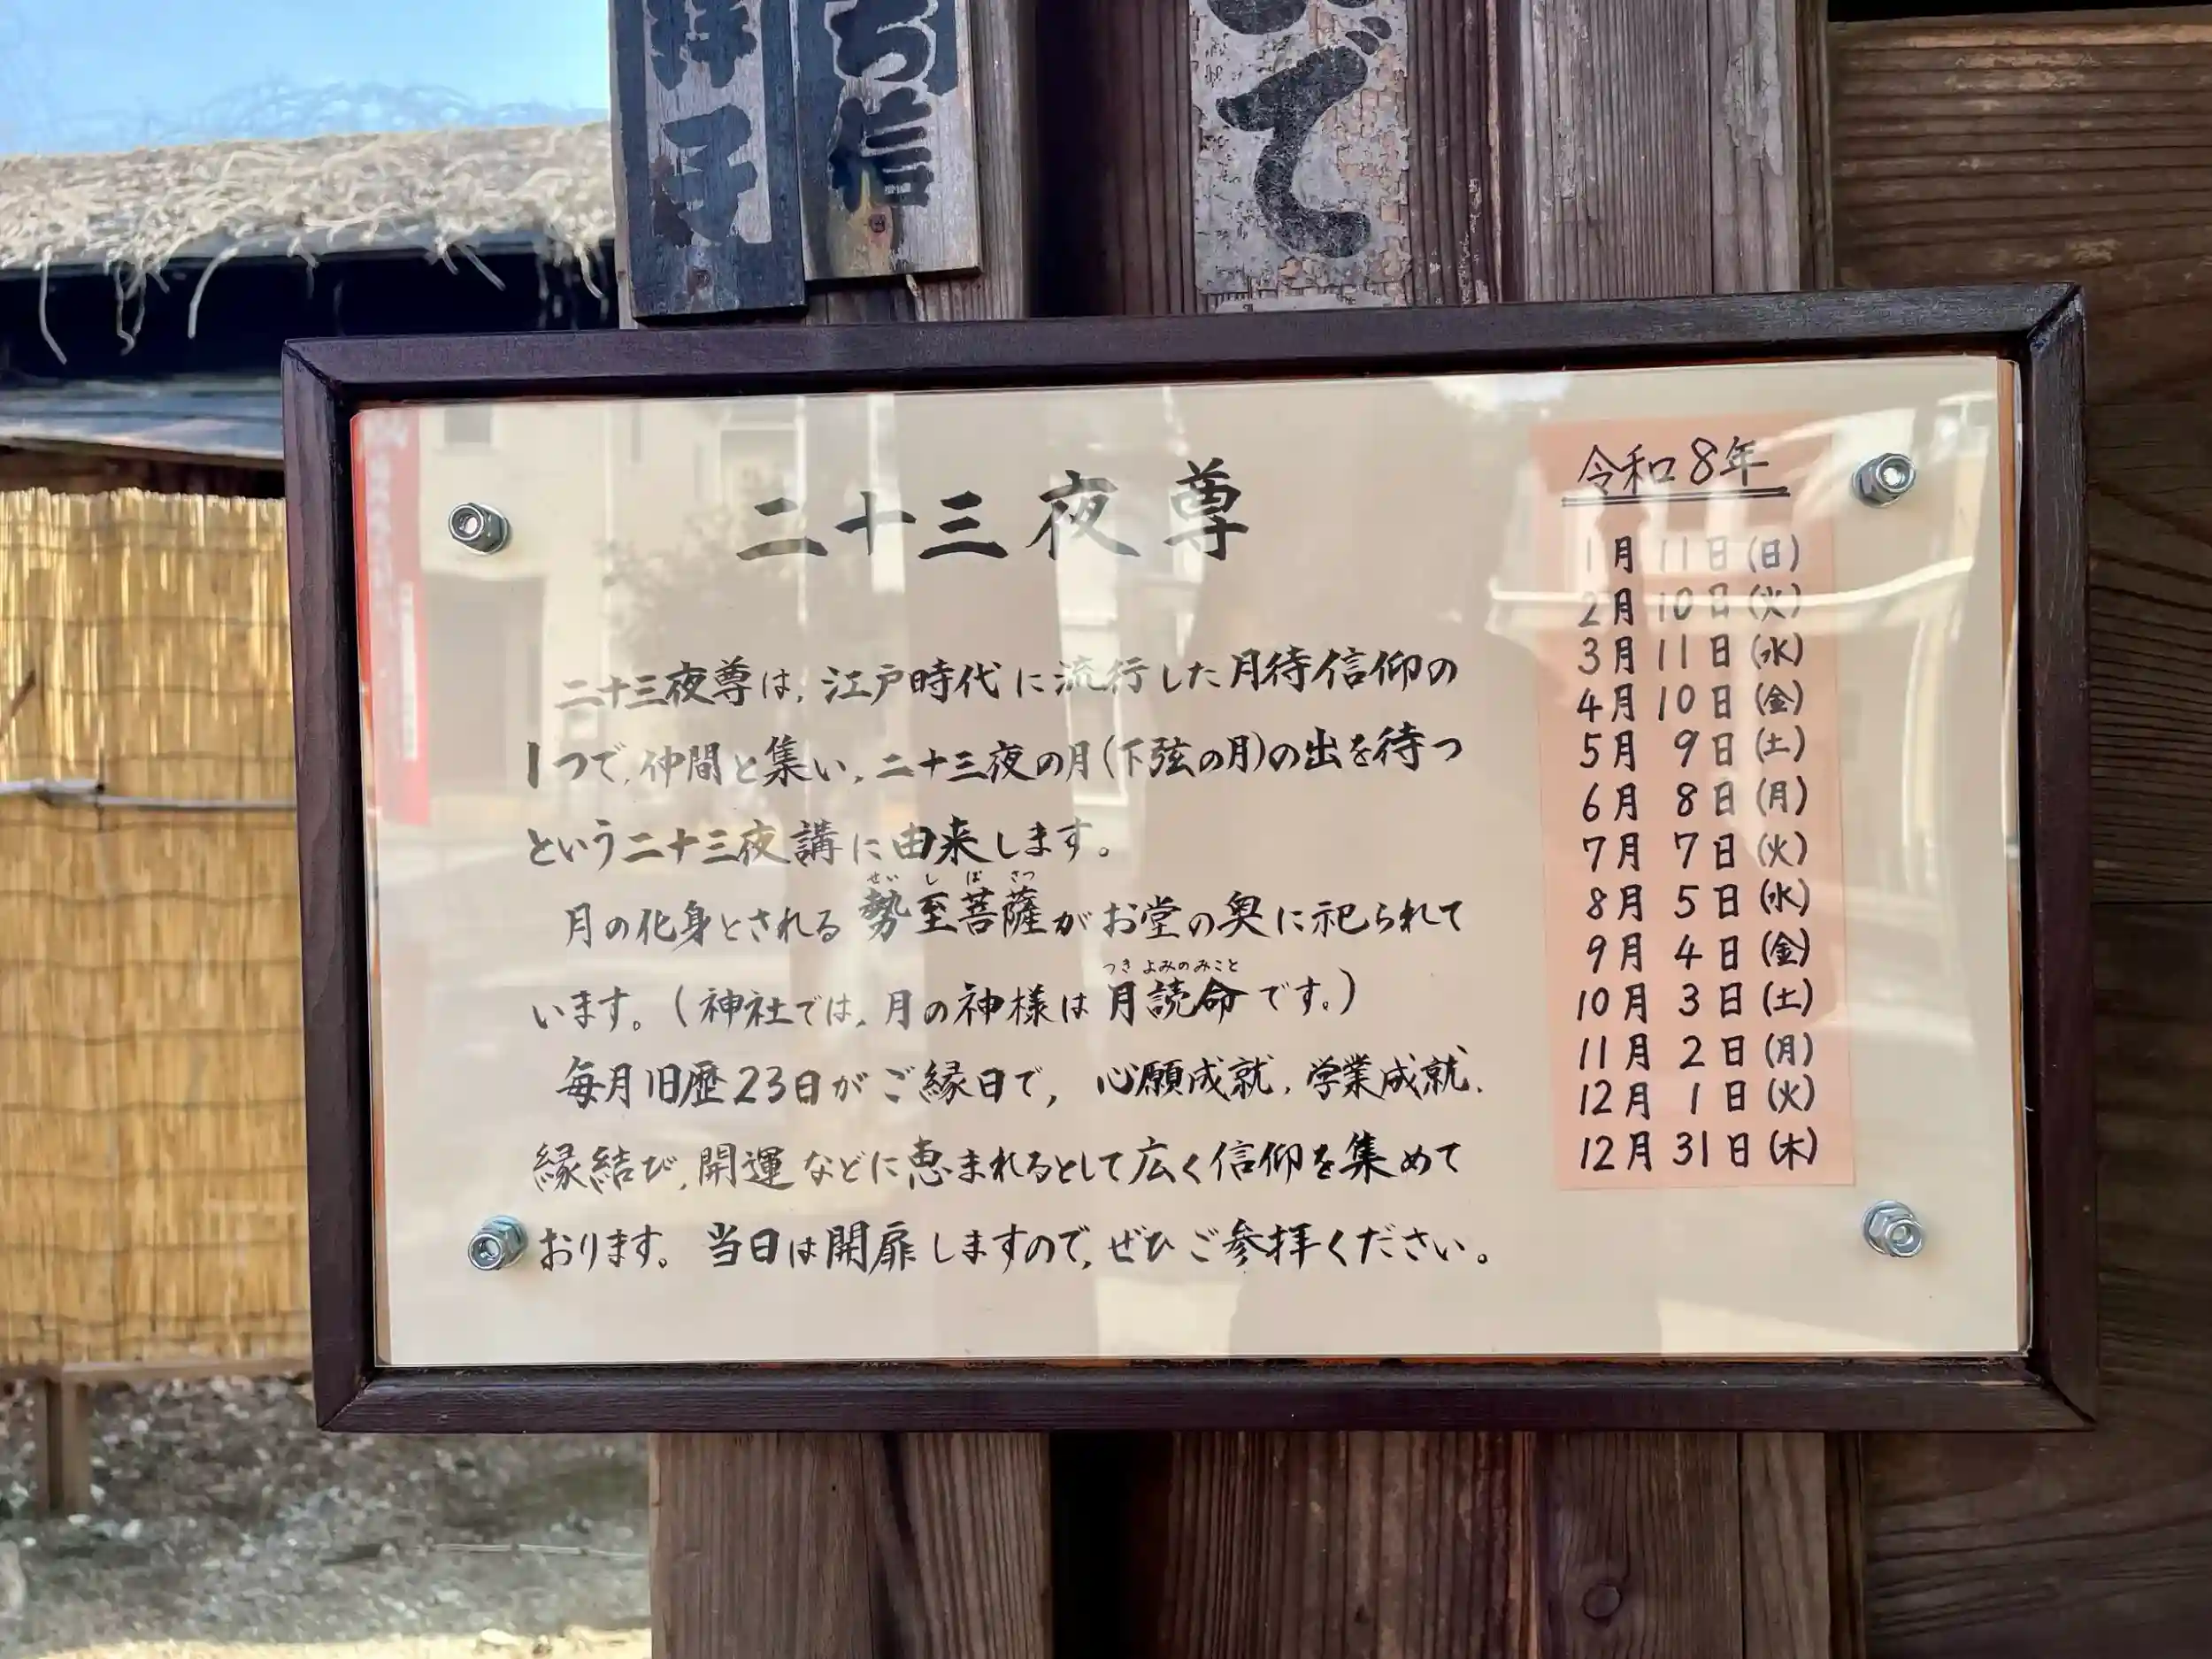 拝
ち信
で
二十三夜尊
二十三夜尊は、江戸時代に流行した月待信仰の
1つで、仲間と集い、二十三夜の月(下弦の月)の出を待つ
という二十三夜講に由来します。
せい し ぼ さつ
月の化身とされる勢至菩薩がお堂の奥に祀られて
つき よみのみこと
います。(神社では、月の神様は月読命です。)
毎月旧歴23日がご縁日で、心願成就、学業成就、
縁結び、開運などに恵まれるとして広く信仰を集めて
おります。当日は開扉しますので、ぜひご参拝ください。
令和8年
1月11日(日)
2月10日(火)
3月11日(水)
4月10日(金)
5月 9日(土)
6月 8日(月)
7月 7日(火)
8月 5日(水)
9月 4日(金)
10月 3日(土)
11月 2日(月)
12月 1日(火)
12月31日(木)